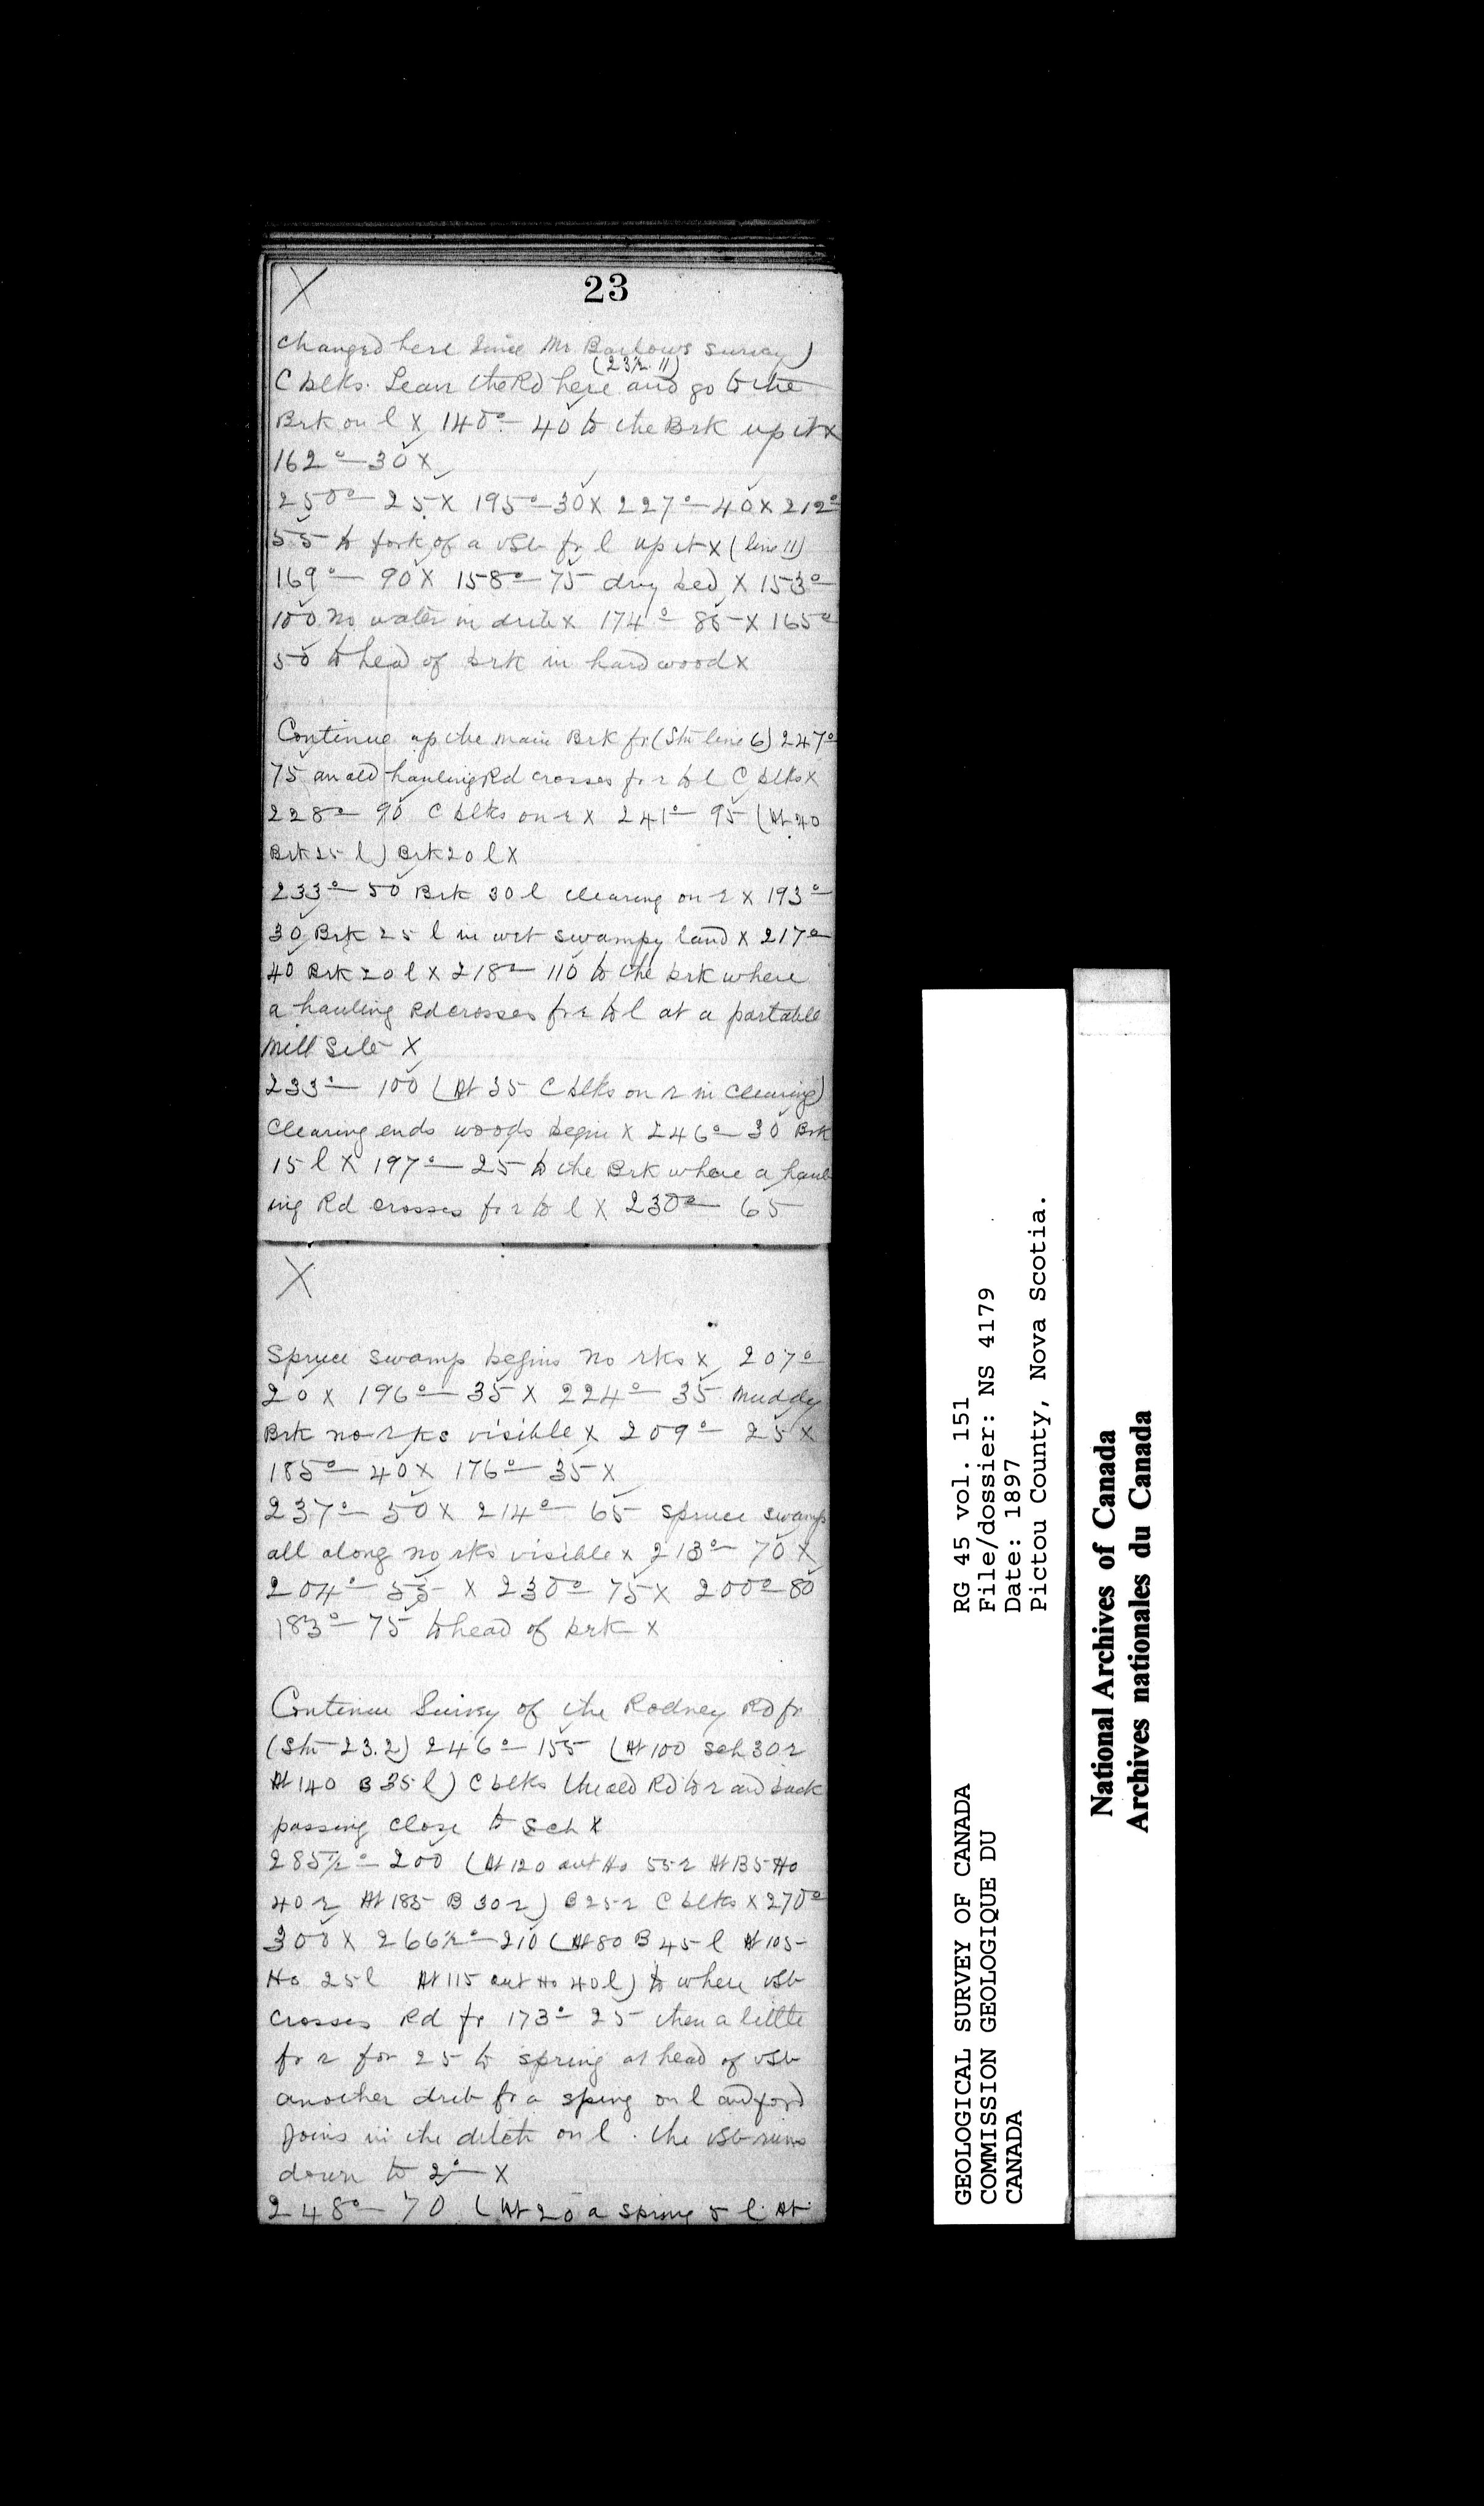 X
23
changed here since Mr Barlows survey)
(23½.11)
C blks. Leave the Rd here and go to the
Brk on l x 140° — 40 to the Brk up it x
162° — 30 x
250° — 25 x 195° — 30 x 227° — 40 x 212°
55 to fork of a vSb fr l up it x (line 11)
169° — 90 x 158° — 75 dry bed x 153°
100 no water in drib x 174° — 85 x 165°
50 to head of brk in hardwood x
Continue up the main Brk fr (Stn line 6) 247°
75 an old hauling Rd crosses fr r to l C blks x
228° — 90 C blks on r x 241° — 95 (At 40
Brk 25 l) Brk 20 l x
233° — 50 Brk 30 l clearing on r x 193°
30 Brk 25 l in wet swampy land x 217°
40 Brk 20 l x 218° — 110 to the brk where
a hauling Rd crosses fr r to l at a portable
Mill Site x
233° — 100 (At 35 C blks on r in clearing)
Clearing ends woods begin x 246° — 30 Brk
15 l x 197° — 25 to the Brk where a haul
ing Rd crosses fr r to l x 230° — 65
X
Spruce swamp begins no rks x 207°
20 x 196° — 35 x 224° — 35 Muddy
Brk no rks visible x 209° — 25 x
185° — 40 x 176° — 35 x
237° — 50 x 214° — 65 spruce swamp
all along no rks visible x 213° — 70 x
204° — 55 x 230° — 75 x 200° — 80
183° — 75 to head of brk x
Continue Survey of the Rodney Rd fr
(Stn 23.2) 246° — 155 (At 100 Sch 30 r
At 140 B 35 l) C blks the old Rd to r and back
passing close to Sch x
285½° — 200 (At 120 out Ho 55 r At 135 Ho
40 r At 185 B 30 r) B 25 r C blks x 270°
300 x 266½° — 210 (At 80 B 45 l At 105
Ho 25 l At 115 out Ho 40 l) to where vSb
crosses Rd fr 173° — 25 then a little
fr r for 25 to spring at head of vSb
another drib fr a spring on l and
joins in the ditch on l. the vSb runs
down to 2° — x
248° — 70 (At 20 a spring 5 l At
GEOLOGICAL SURVEY OF CANADA
COMMISSION GEOLOGIQUE DU
CANADA
RG 45 vol. 151
File/dossier: NS 4179
Date: 1897
Pictou County, Nova Scotia.
National Archives of Canada
Archives nationales du Canada